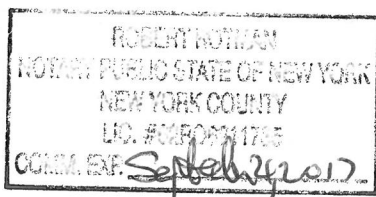 ROBERT
NOTARY PUBLIC STATE OF NEW YORK
NEW YORK COUNTY
LIC.
COMM. EXP. September 2017